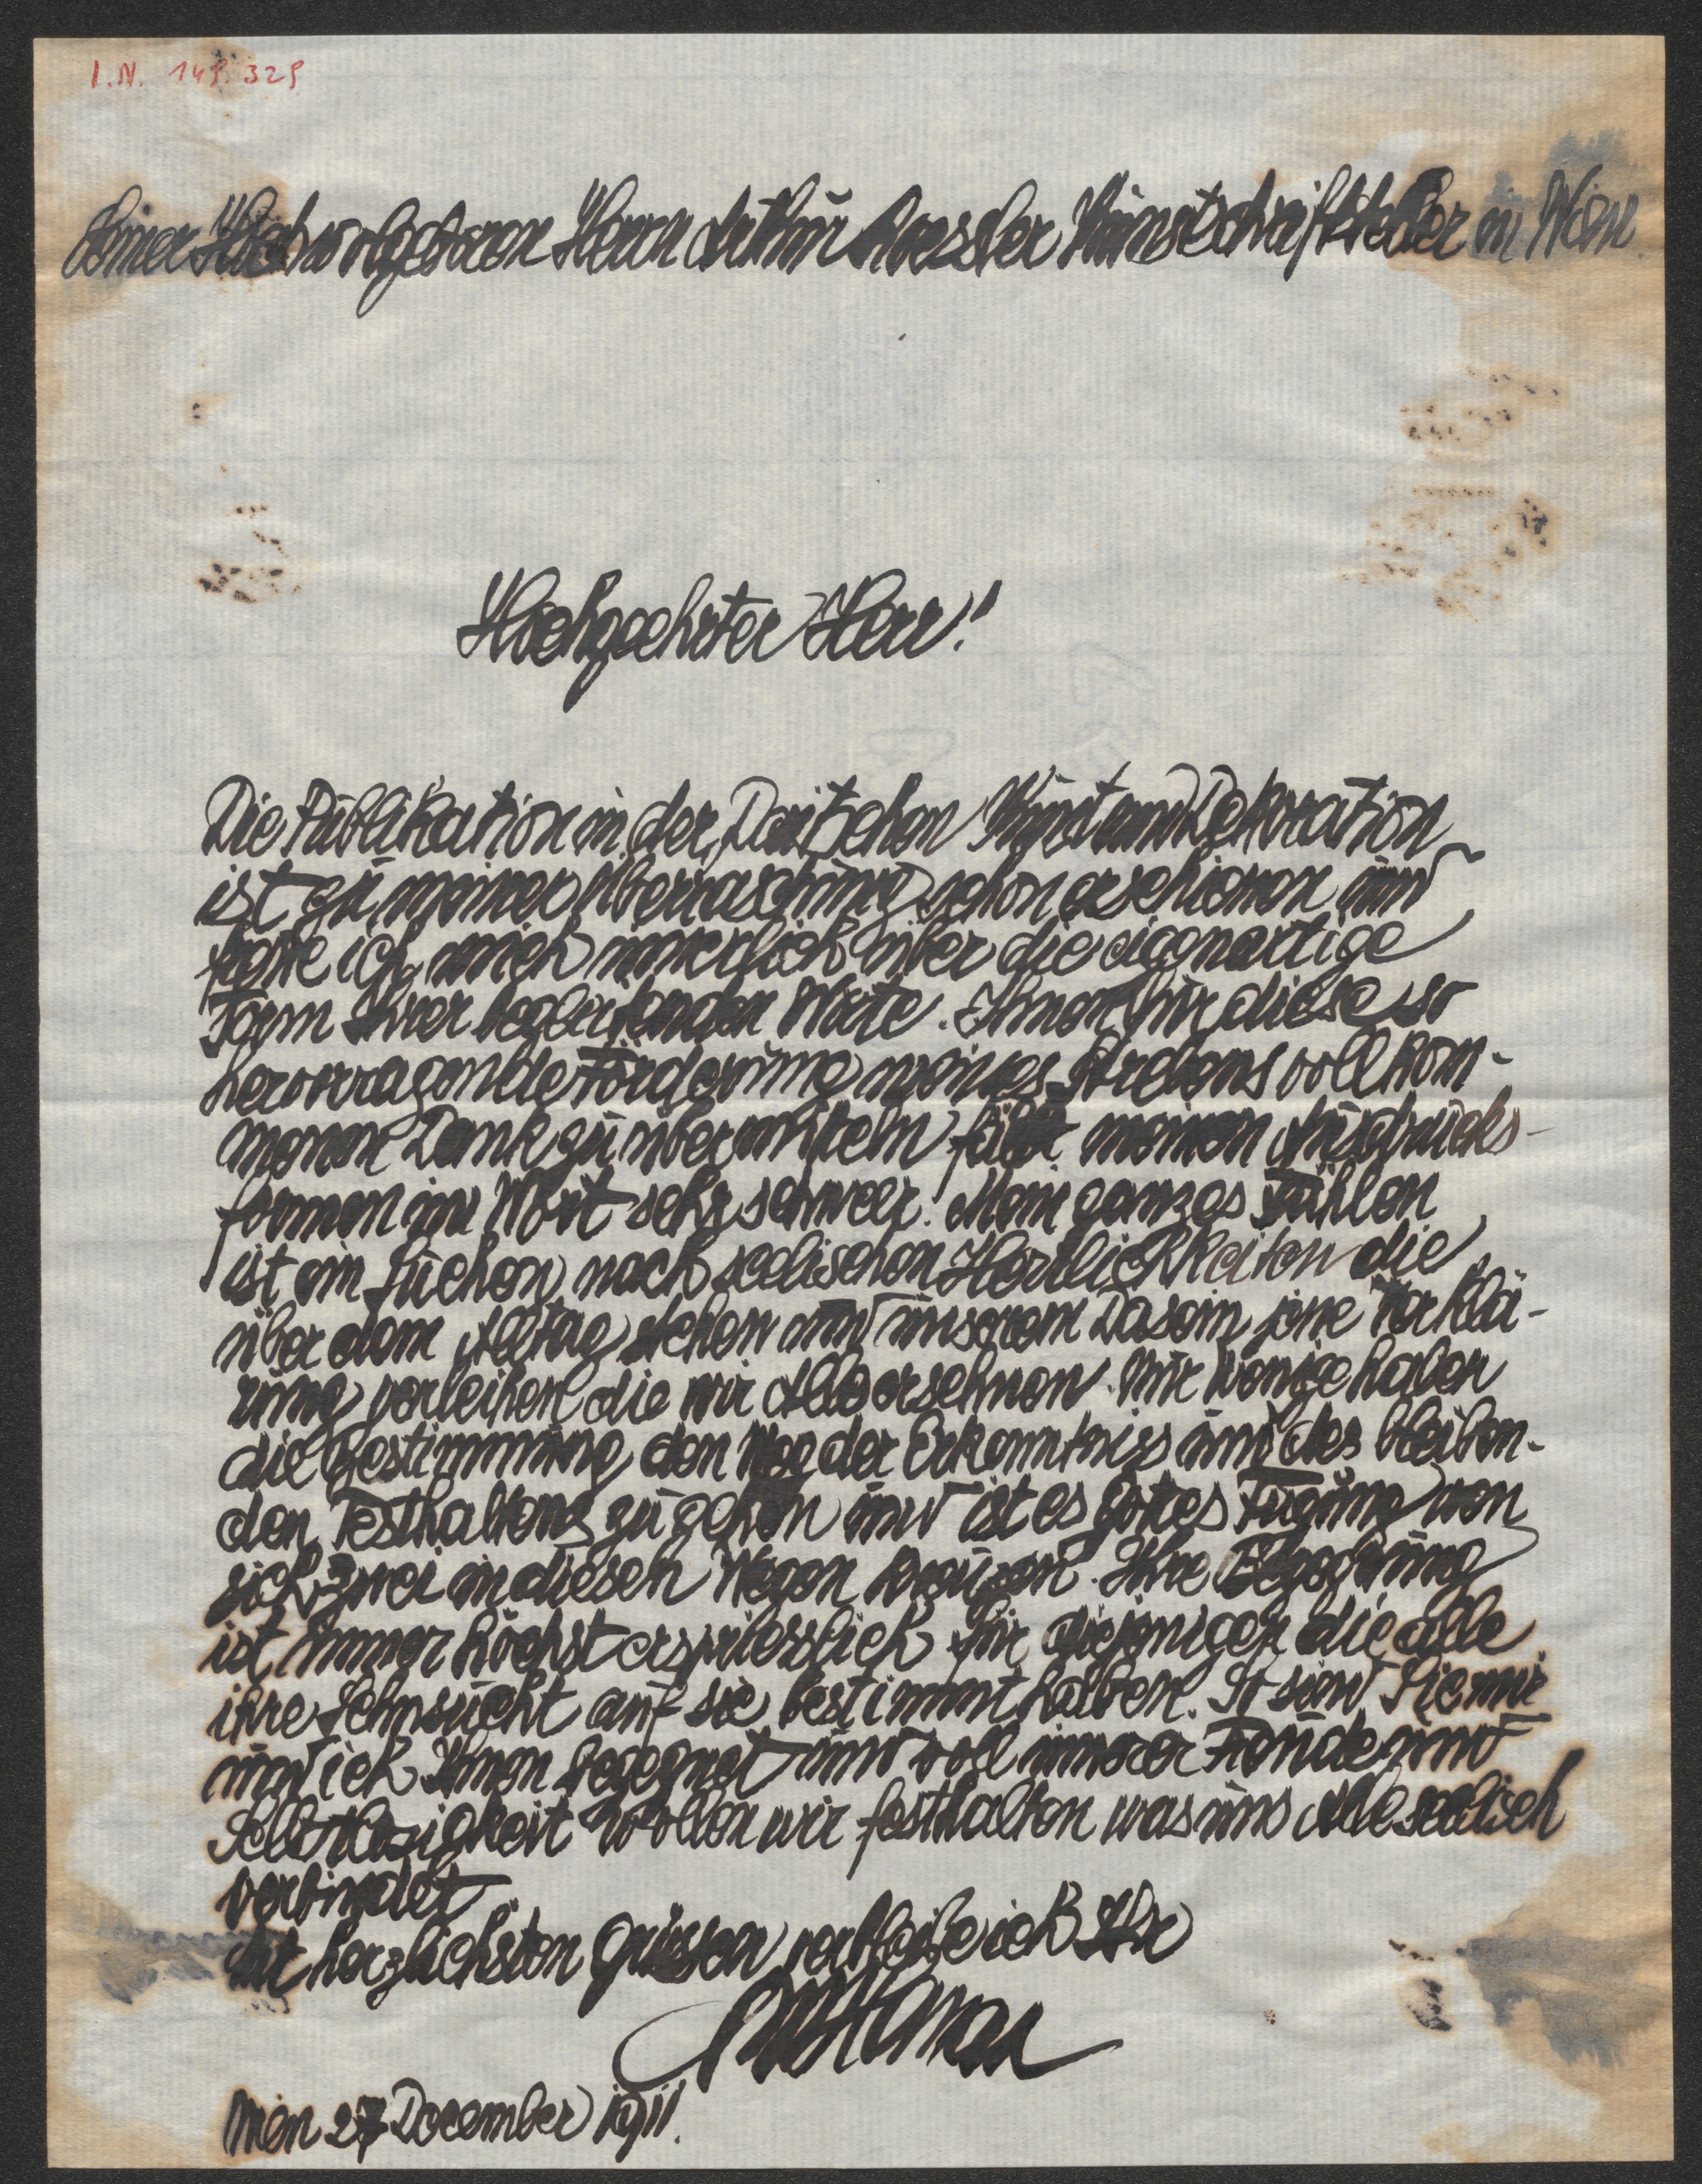 I.N. 149.329
Seiner Hochwolgeboren Herrn Arthur Roessler Kunstschriftsteller in Wien.
Hochgeehrter Herr!
Die Publikation in der „Deutschen Kunst und Dekoration
ist zu meiner Überraschung schon erschienen und
freue ich mich innerlich über die eigenartige
Form Ihrer begleitenden Worte. Ihnen für diese so
hervorragende Förderung meines Strebens vollkom-
menen Dank zu übermitteln fällt meinen Ausdrucks-
formen im Wort sehr schwer. Mein ganzes Fühlen
ist ein Suchen nach seelischen Herrlichkeiten die
über dem Alltag stehen und unserem Dasein jene Verklä-
rung verleihen die wir Alle ersehnen. Nur wenige haben
die Bestimmung den Weg der Erkenntniss und des bleiben-
den Festhaltens zu gehen und ist es Gottes Fügung wen
sich zwei in diesen Wegen kreuzen. Ihre Begegnung
ist immer höchst erspriesslich für diejenigen die alle
ihre Sehnsucht auf sie bestimmt haben. So sind Sie mir
und ich Ihnen begegnet und voll innerer Freude und
Selbstlosigkeit wollen wir festhalten was uns Alle seelisch
verbindet
Mit herzlichsten Grüssen verbleibe ich Ihr
Wien 27 December 1911.